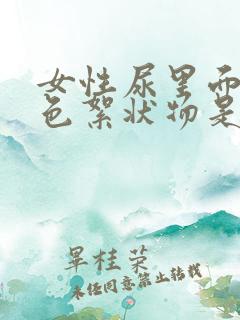 女性尿里面
色絮状物是
晕桂荣
未经同意禁止转载